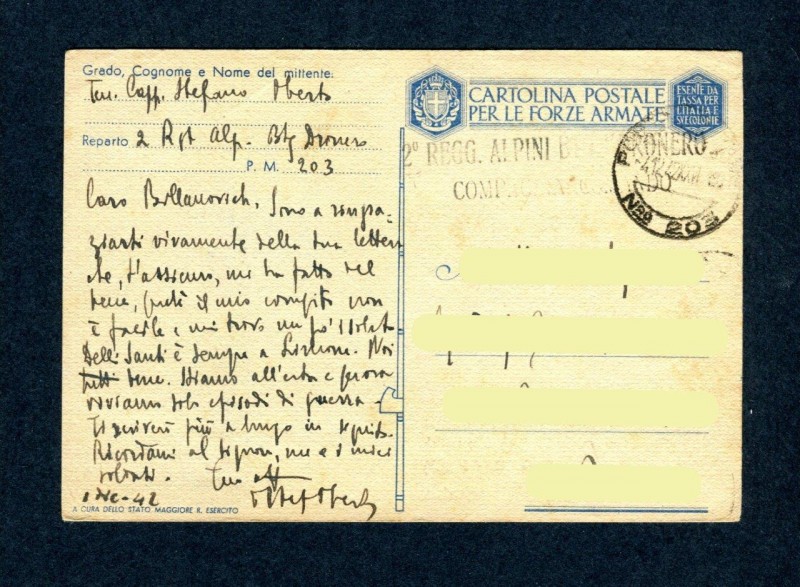 Grado, Cognome e Nome del mittente:
Ten. Capp. Stefano Oberto
Reparto 2 Rgt Alp. Btg Dronero
P. M. 203
Caro Billanovich, sono a ringra-
ziarti vivamente della tua lettera
che, t'assicuro, mi ha fatto del
bene, perché il mio compito non
è facile e mi trovo un po' isolato
Delli Santi è sempre a
Noi
tutti bene. Stiamo all'erta e finora
viviamo solo episodi di guerra -
Ti scriverò più a lungo in seguito.
Ricordami al Signore, me e i miei
soldati. Tuo aff
D Stef Oberto
1 Dic - 42
A CURA DELLO STATO MAGGIORE R. ESERCITO
CARTOLINA POSTALE
PER LE FORZE ARMATE
ESENTE DA
TASSA PER
L'ITALIA E
SUE COLONIE
2° REGG. ALPINI DRONERO
POST
N.RO 203